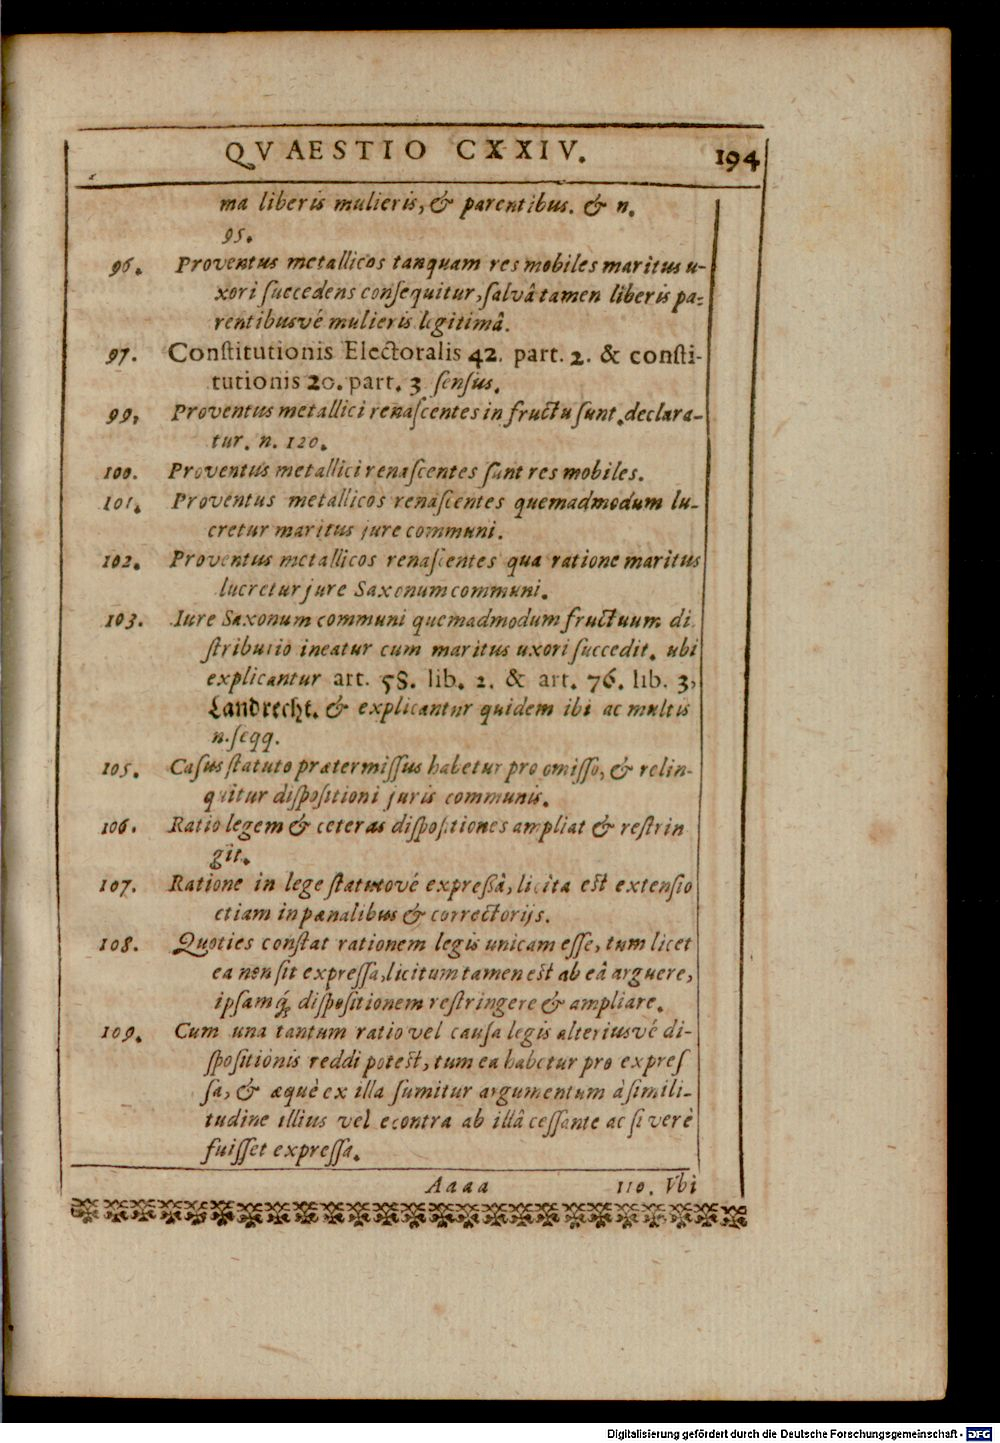 QVAESTIO CXXIV. 194
ma liberis mulieris, & parentibus. & n.
95.
96. Proventus metallicos tanquam res mobiles maritus u-
xori succedens consequitur, salvâ tamen liberis pa-
rentibusvé mulieris legitimâ.
97. Constitutionis Electoralis 42. part. 2. & consti-
tutionis 20. part. 3 sensus.
99. Proventus metallici renascentes in fructu sunt. declara-
tur. n. 120.
100. Proventus metallici renascentes sunt res mobiles.
101. Proventus metallicos renascentes quemadmodum lu-
cretur maritus jure communi.
102. Proventus metallicos renascentes qua ratione maritus
lucretur jure Saxonum communi.
103. Iure Saxonum communi quemadmodum fructuum di
stributio ineatur cum maritus uxori succedit. ubi
explicantur art. 58. lib. 2. & art. 76. lib. 3,
Landrecht. & explicantur quidem ibi ac multis
n. seqq.
105. Casus statuto prætermissus habetur pro omisso, & relin-
quitur dispositioni juris communis.
106. Ratio legem & ceteras dispositiones ampliat & restrin
git.
107. Ratione in lege statutové expressâ, licita est extensio
etiam in pœnalibus & correctorijs.
108. Quoties constat rationem legis unicam esse, tum licet
ea non sit expressa, licitum tamen est ab eâ arguere,
ipsamq́; dispositionem restringere & ampliare.
109. Cum una tantum ratio vel causa legis alteriusvé di-
spositionis reddi potest, tum ea habetur pro expres
sa, & æquè ex illa sumitur argumentum à simili-
tudine illius vel econtra ab illâ cessante ac si verè
fuisset expressa.
Aaaa 110. Vbi
Digitalisierung gefördert durch die Deutsche Forschungsgemeinschaft - DFG